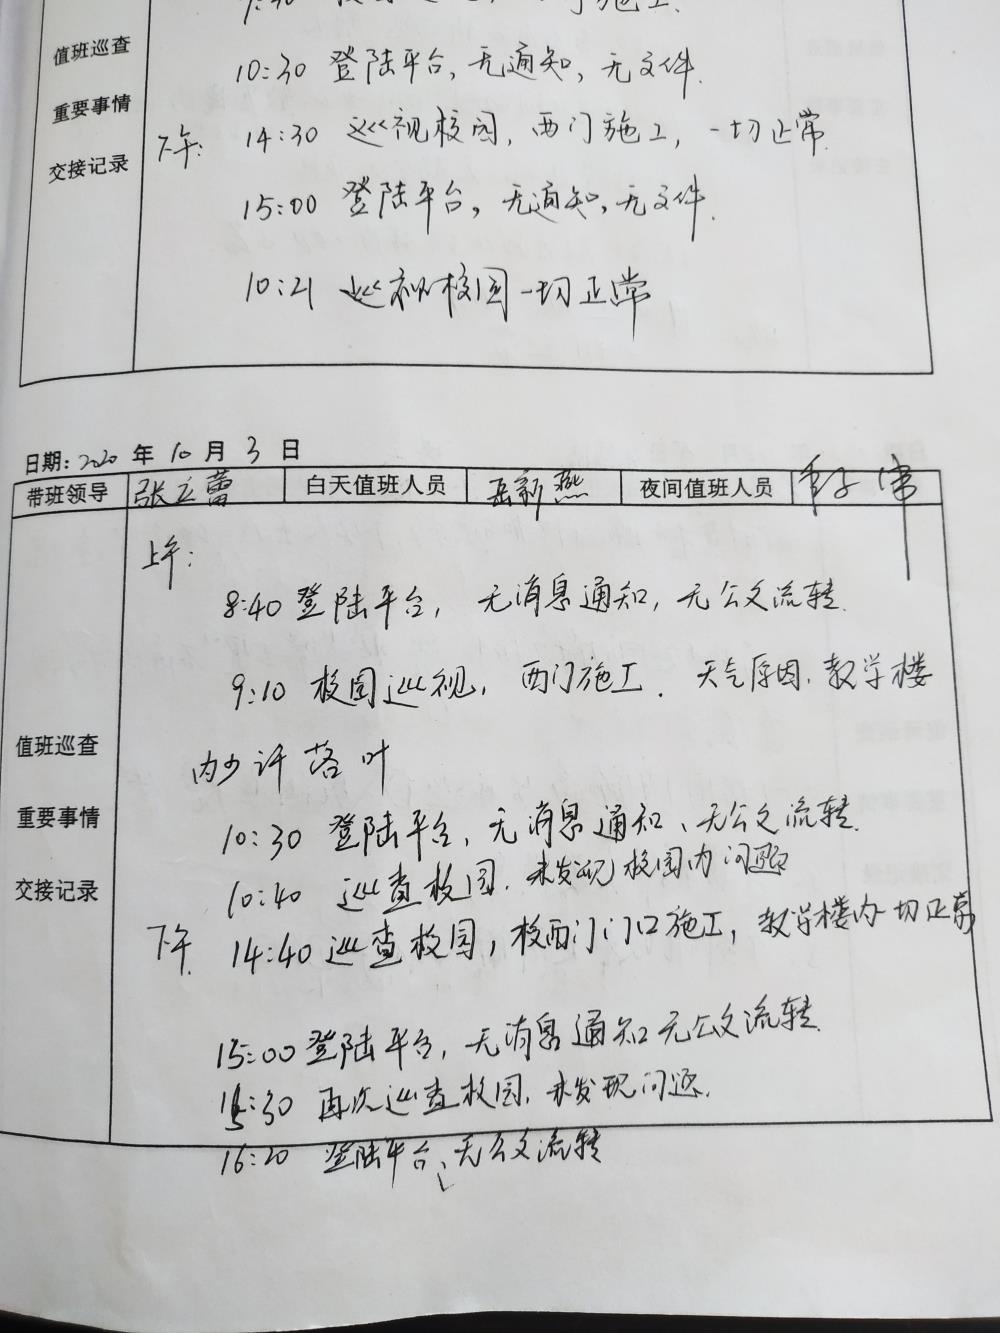 施工.
值班巡查
10:30 登陆平台, 无通知, 无文件.
重要事情
下午: 14:30 巡视校园, 西门施工, 一切正常.
交接记录
15:00 登陆平台, 无通知, 无文件.
10:21 巡视校园一切正常
日期: 2020 年 10 月 3 日
带班领导 张立蕾 白天值班人员 岳新燕 夜间值班人员
上午:
8:40 登陆平台, 无消息通知, 无公文流转.
9:10 校园巡视, 西门施工. 天气原因, 教学楼
值班巡查
内少许落叶
重要事情
10:30 登陆平台, 无消息通知、无公文流转.
交接记录
10:40 巡查校园. 未发现校园内问题
下午. 14:40 巡查校园, 校西门门口施工, 教学楼内一切正常
15:00 登陆平台, 无消息通知无公文流转.
15:30 再次巡查校园, 未发现问题.
16:20 登陆平台, 无公文流转